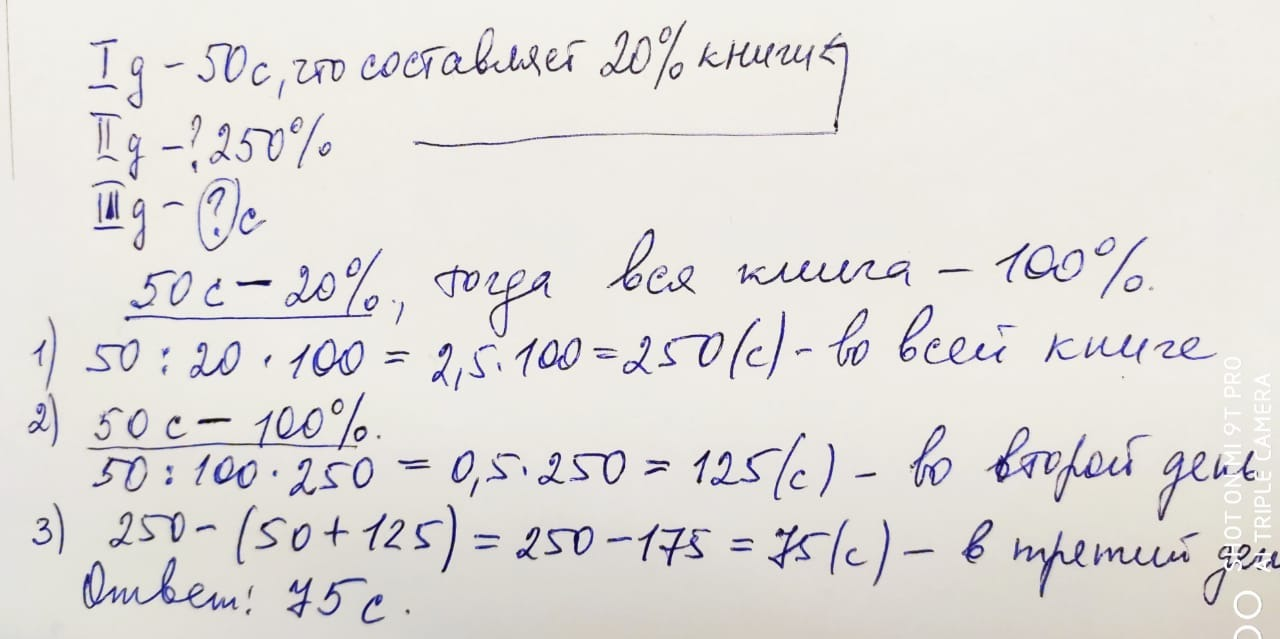 I д - 50с, что составляет 20% книги
II д - ? 250%
III д - ? с
50 с - 20%, тогда вся книга - 100%.
1) 50 : 20 · 100 = 2,5 · 100 = 250 (с) - во всей книге
2) 50 с - 100%.
50 : 100 · 250 = 0,5 · 250 = 125 (с) - во второй день
3) 250 - (50 + 125) = 250 - 175 = 75 (с) - в третий ден
Ответ: 75 с.
SHOT ON MI 9T PRO
AI TRIPLE CAMERA